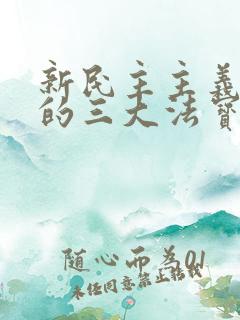 新民主主义
的三大法宝
随心而为01
未经同意禁止转载